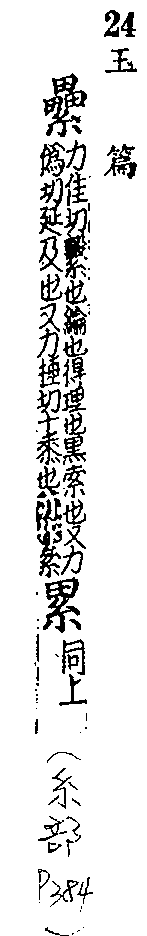 24
玉篇
纍
力佳切繫也綸也得理也黒索也又力
偽切延及也又力捶切十黍也絫
累
同上
(糸部 P384)